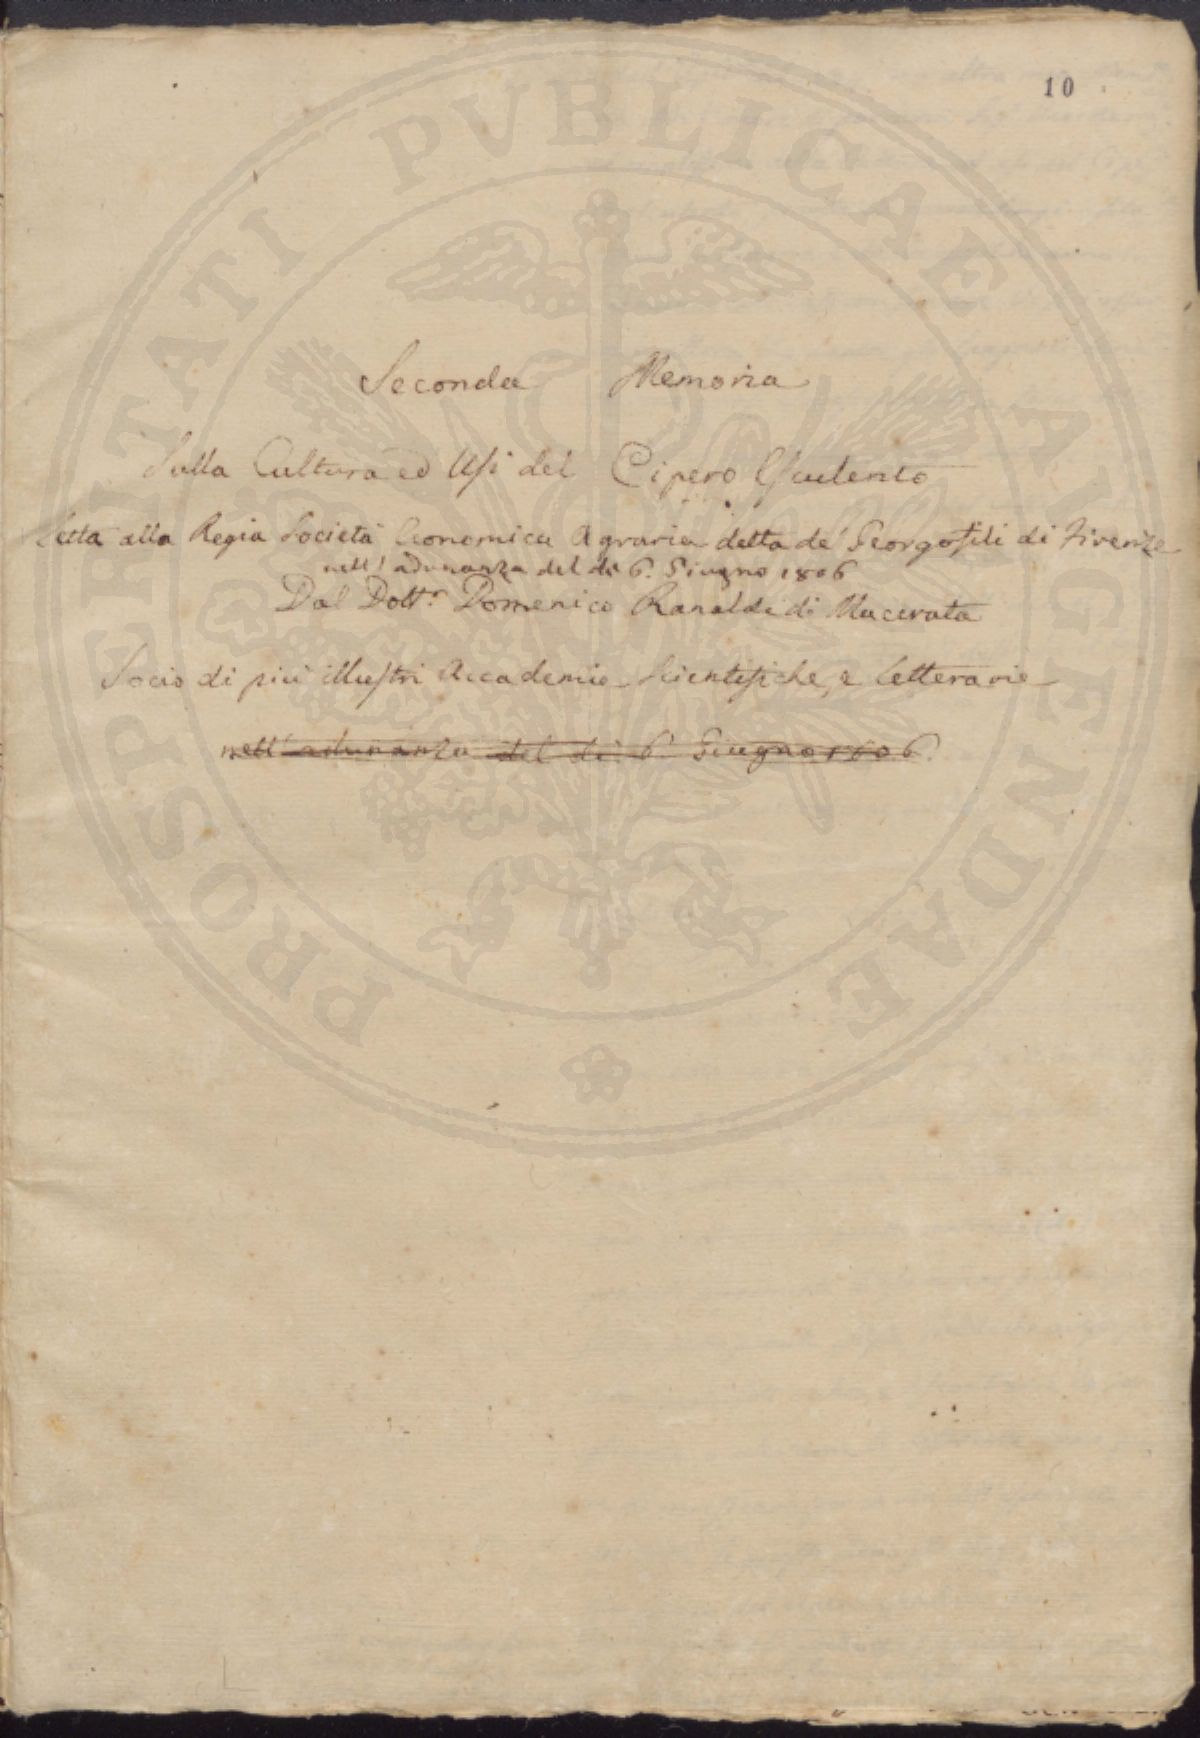 10
PROSPERITATI PUBLICAE AUGENDAE
Seconda Memoria
Sulla Cultura ed Usi del Cipero Esculento
Letta alla Regia Società Economica Agraria detta de' Georgofili di Firenze
nell' adunanza del dì 6. Giugno 1806
Dal Dott.r Domenico Ranaldi di Macerata
Socio di più illustri Accademie Scientifiche, e Letterarie
nell' adunanza del dì 6. Giugno 1806.